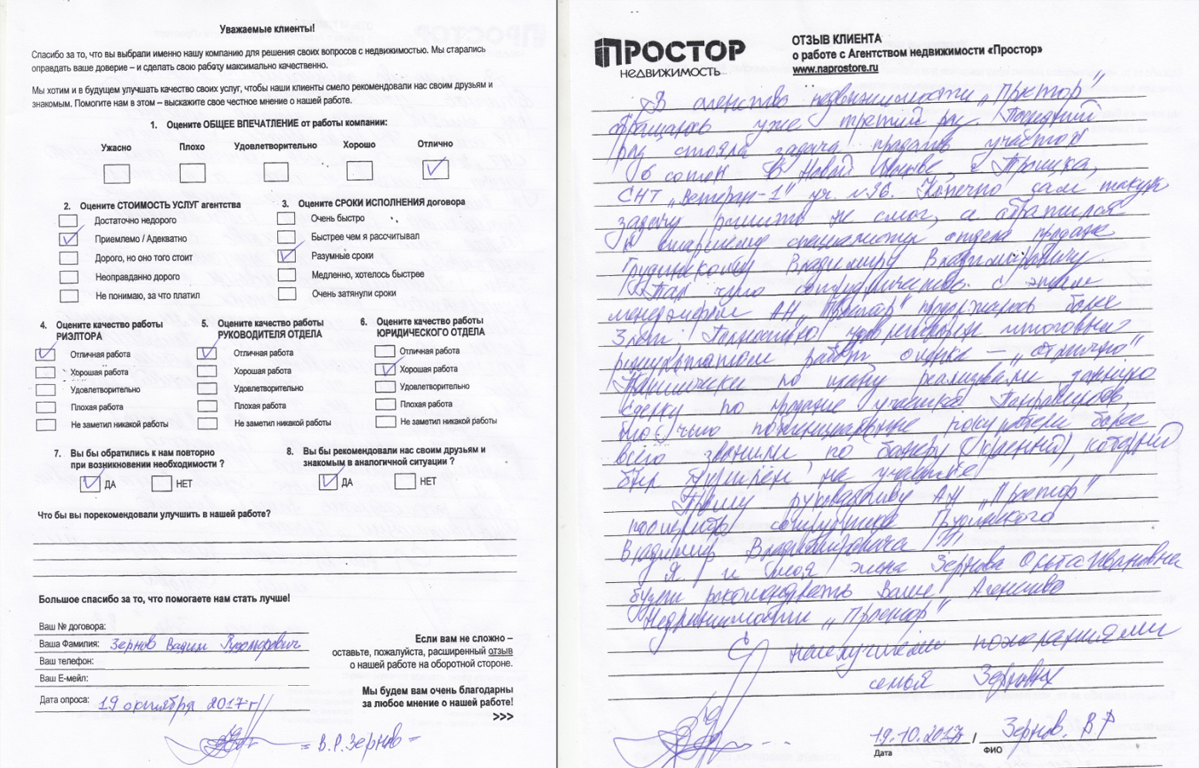 Уважаемые клиенты!
Спасибо за то, что вы выбрали именно нашу компанию для решения своих вопросов с недвижимостью. Мы старались
оправдать ваше доверие – и сделать свою работу максимально качественно.
Мы хотим и в будущем улучшать качество своих услуг, чтобы наши клиенты смело рекомендовали нас своим друзьям и
знакомым. Помогите нам в этом – выскажите свое честное мнение о нашей работе.
1. Оцените ОБЩЕЕ ВПЕЧАТЛЕНИЕ от работы компании:
Ужасно Плохо Удовлетворительно Хорошо Отлично
2. Оцените СТОИМОСТЬ УСЛУГ агентства
Достаточно недорого
Приемлемо / Адекватно
Дорого, но оно того стоит
Неоправданно дорого
Не понимаю, за что платил
3. Оцените СРОКИ ИСПОЛНЕНИЯ договора
Очень быстро
Быстрее чем я рассчитывал
Разумные сроки
Медленно, хотелось быстрее
Очень затянули сроки
4. Оцените качество работы
РИЭЛТОРА
Отличная работа
Хорошая работа
Удовлетворительно
Плохая работа
Не заметил никакой работы
5. Оцените качество работы
РУКОВОДИТЕЛЯ ОТДЕЛА
Отличная работа
Хорошая работа
Удовлетворительно
Плохая работа
Не заметил никакой работы
6. Оцените качество работы
ЮРИДИЧЕСКОГО ОТДЕЛА
Отличная работа
Хорошая работа
Удовлетворительно
Плохая работа
Не заметил никакой работы
7. Вы бы обратились к нам повторно
при возникновении необходимости ?
ДА НЕТ
8. Вы бы рекомендовали нас своим друзьям и
знакомым в аналогичной ситуации ?
ДА НЕТ
Что бы вы порекомендовали улучшить в нашей работе?
Большое спасибо за то, что помогаете нам стать лучше!
Ваш № договора:
Ваша Фамилия: Зернов Вадим
Ваш телефон:
Ваш Е-мейл:
Дата опроса: 19 октября 2017г
Если вам не сложно –
оставьте, пожалуйста, расширенный отзыв
о нашей работе на оборотной стороне.
Мы будем вам очень благодарны
за любое мнение о нашей работе!
>>>
= В.Р.Зернов =
ПРОСТОР
НЕДВИЖИМОСТЬ
ОТЗЫВ КЛИЕНТА
о работе с Агентством недвижимости «Простор»
www.naprostore.ru
В агенство недвижимости „Простор"
уже третий раз
раз стояла задача продать участок
6 соток в Новой
СНТ уч.
задачу решить не смог, а обратился
к специалисту отдела продаж
Владимиру Владимировичу
сотрудничество с этим
менеджером АН „Простор" более
работы оценка — „отлично"
по данную
сделку по продаже участка
покупатели более
всего звонили по баннеру который
был на участке!
Прошу АН „Простор"
сотрудника
Владимира Владимировича !!!
Я и моя жена Зернова Ольга Ивановна
будем рекомендовать Ваше Агенство
Недвижимости „Простор"
С наилучшими пожеланиями
семья Зерновых
19.10.2017 / Зернов. В Р
Дата ФИО